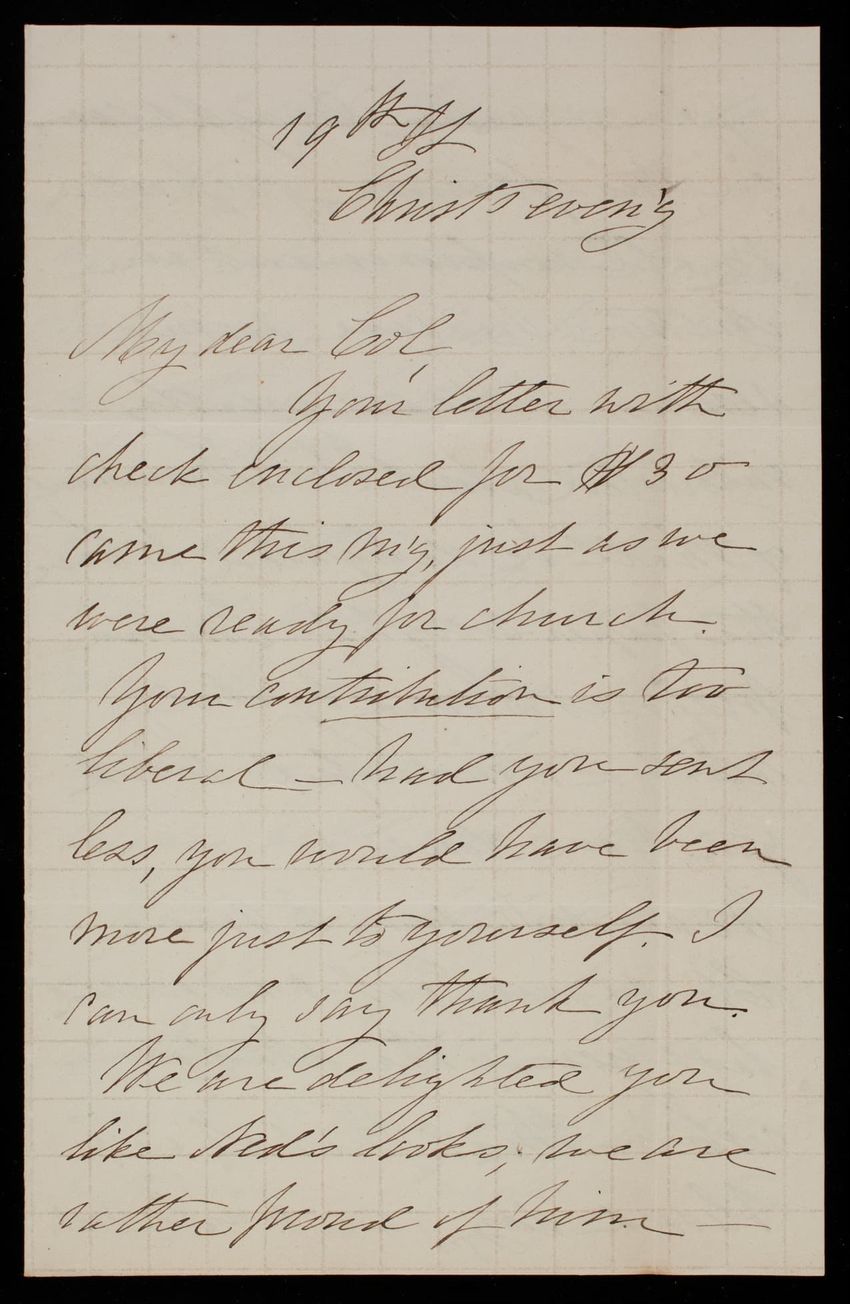 19th St
Christs even'g
My dear Col,
Your letter with
check enclosed for $30
came this m'g, just as we
were ready for church.
Your contribution is too
liberal — had you sent
less, you would have been
more just to yourself. I
can only say thank you.
We are delighted you
like Ned's looks; we are
rather proud of him —